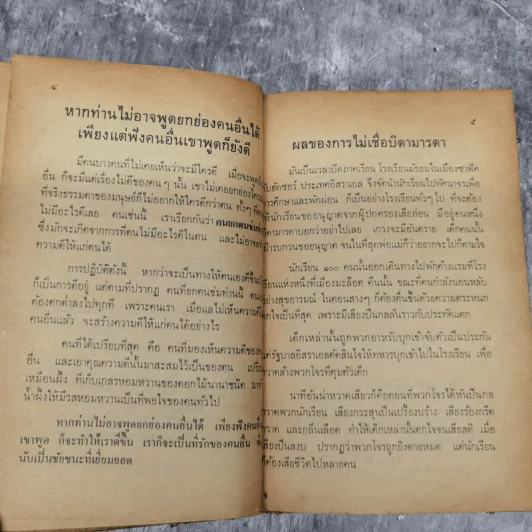 ๔
หากท่านไม่อาจพูดยกย่องคนอื่นได้
เพียงแต่ฟังคนอื่นเขาพูดก็ยังดี
มีคนบางคนที่ไม่เคยเห็นว่าจะมีใครดี เมื่อจะพูดถึง
อื่น ก็จะมีแต่เรื่องไม่ดีของคนๆ นั้น เขาไม่เคยยกย่องใคร
ที่จริงธรรมดาของมนุษย์ก็ไม่อยากให้ใครดีกว่าตน ทั้งๆ ที่
ไม่มีอะไรดีเลย คนเช่นนี้ เราเรียกกันว่า คนยกตนข่มท่าน
ซึ่งมักจะเกิดจากการที่ตนไม่มีอะไรดีในตน และไม่อาจ
ความดีให้แก่ตนได้
การปฏิบัติดังนี้ หากว่าจะเป็นทางให้ตนเองดีขึ้น
ก็เป็นการดีอยู่ แต่ตามที่ปรากฏ คนที่ยกตนข่มท่านนี้
ต้องตกต่ำลงไปทุกที เพราะคนเรา เมื่อแลไม่เห็นความดี
คนอื่นแล้ว จะสร้างความดีให้แก่ตนได้อย่างไร
คนที่ได้เปรียบที่สุด คือ คนที่มองเห็นความดีของ
อื่น และเอาคุณความดีนั้นมาสะสมไว้เป็นของตน
เหมือนผึ้ง ที่เก็บเกสรหอมหวานของดอกไม้นานาชนิด
น้ำผึ้งให้มีรสหอมหวานเป็นที่พอใจของคนทั่วไป
หากท่านไม่อาจพูดยกย่องคนอื่นได้ เพียงฟังคนอื่น
เขาพูด ก็จะทำให้เราดีขึ้น เราก็จะเป็นที่รักของคนอื่น
นับเป็นชัยชนะที่เยี่ยมยอด
๕
ผลของการไม่เชื่อบิดามารดา
มันเป็นเวลาปิดภาคเรียน โรงเรียนมัธยมในเมืองซาฟัด
ประเทศอิสราเอล จึงจัดนำนักเรียนไปทัศนาจรเพื่อ
การศึกษาและพักผ่อน ก็เป็นอย่างโรงเรียนทั่วๆ ไป ที่จะต้อง
ให้นักเรียนขออนุญาตจากผู้ปกครองเสียก่อน มีอยู่คนหนึ่ง
มารดาบอกว่าอย่าไปเลย เกรงจะมีอันตราย เด็กคนนั้น
รบกวนขออนุญาต จนในที่สุดพ่อแม่ก็ว่าอยากจะไปก็ตามใจ
นักเรียน ๑๐๐ คนนั้นออกเดินทางไปพักค้างแรมที่โรง
เรียนแห่งหนึ่งที่เมืองมะล็อต คืนนั้น ขณะที่คนกำลังนอนหลับ
อย่างสุขอารมณ์ ในตอนสางๆ ก็ต้องตื่นขึ้นด้วยความตระหนก
ตกใจเป็นที่สุด เพราะมีเสียงปืนกลสนั่นราวกับประทัดแตก
เด็กเหล่านั้นถูกพวกอาหรับบุกเข้าจับตัวเป็นประกัน
แต่รัฐบาลอิสราเอลตัดสินใจให้ทหารบุกเข้าไปในโรงเรียน เพื่อ
กวาดล้างพวกโจรที่คุมตัวเด็ก
นาทีอันน่าหวาดเสียวก็คือตอนที่พวกโจรได้หันปืนกล
กราดพวกนักเรียน เสียงกระสุนปืนเปรี้ยงปร้าง เสียงร้องกรีด
และกลิ่นเลือด ทำให้เด็กเหล่านั้นตกใจจนเสียสติ เมื่อ
เสียงปืนสงบ ปรากฏว่าพวกโจรถูกยิงตายหมด แต่นักเรียน
ก็ต้องเสียชีวิตไปหลายคน